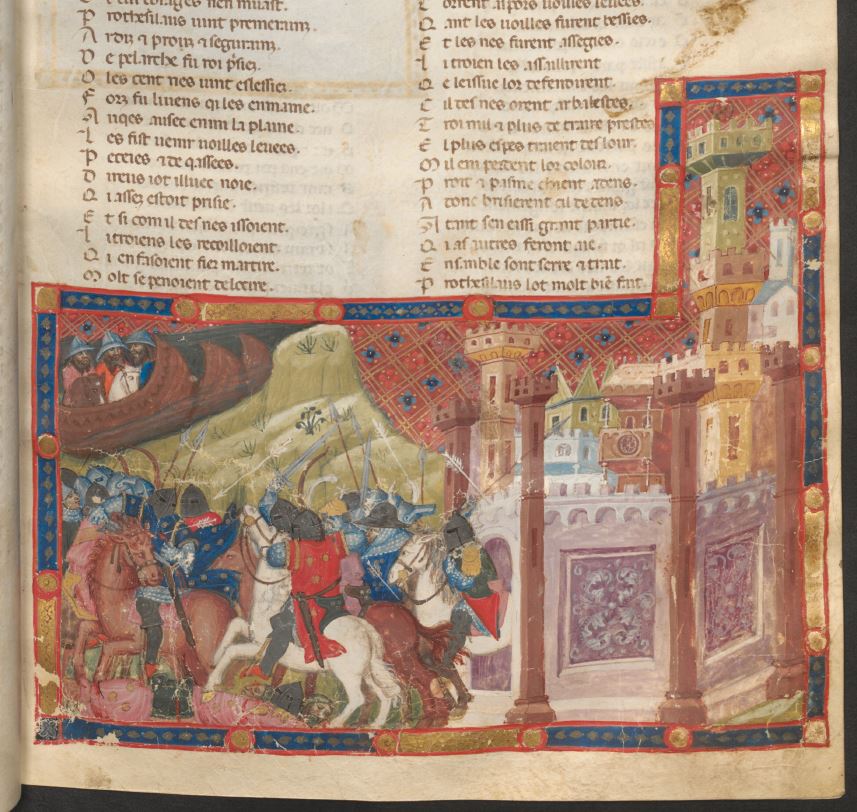 corages nen muast.
Prothesilaus uint premerains.
7 proiz 7 segurains.
De pelarche fu roi p̃siez.
O les cent nes uint esleissiez.
Forz fu li uens qi les enmaine.
ausec enmi la plaine.
Les fist uenir uoilles leuees.
Peceies 7 de qassees.
Direus iot illuec noie.
Qi assez estoit prisie.
Et si com il des nes issoient.
Li troiens les recoilloient.
Qi en fasoient fier martire.
Molt se penoient de locire.
uoilles leuees.
Qant les uoilles furent bessies.
Et les nes furent assegies.
Li troien les assaillirent
Qe leissue lor defendirent.
Cil des nes orent arbalestes.
Troi mil 7 plus de traire prestes
El plus espes traient des lour.
Mil em perdent lor colour.
7 pasme chient adens.
Adonc briserent cil dedens.
Atant sen eissi grant partie.
Qi as autres feront aie.
Ensamble sont serre 7 trait.
Prothesilaus lot molt biẽ fait.